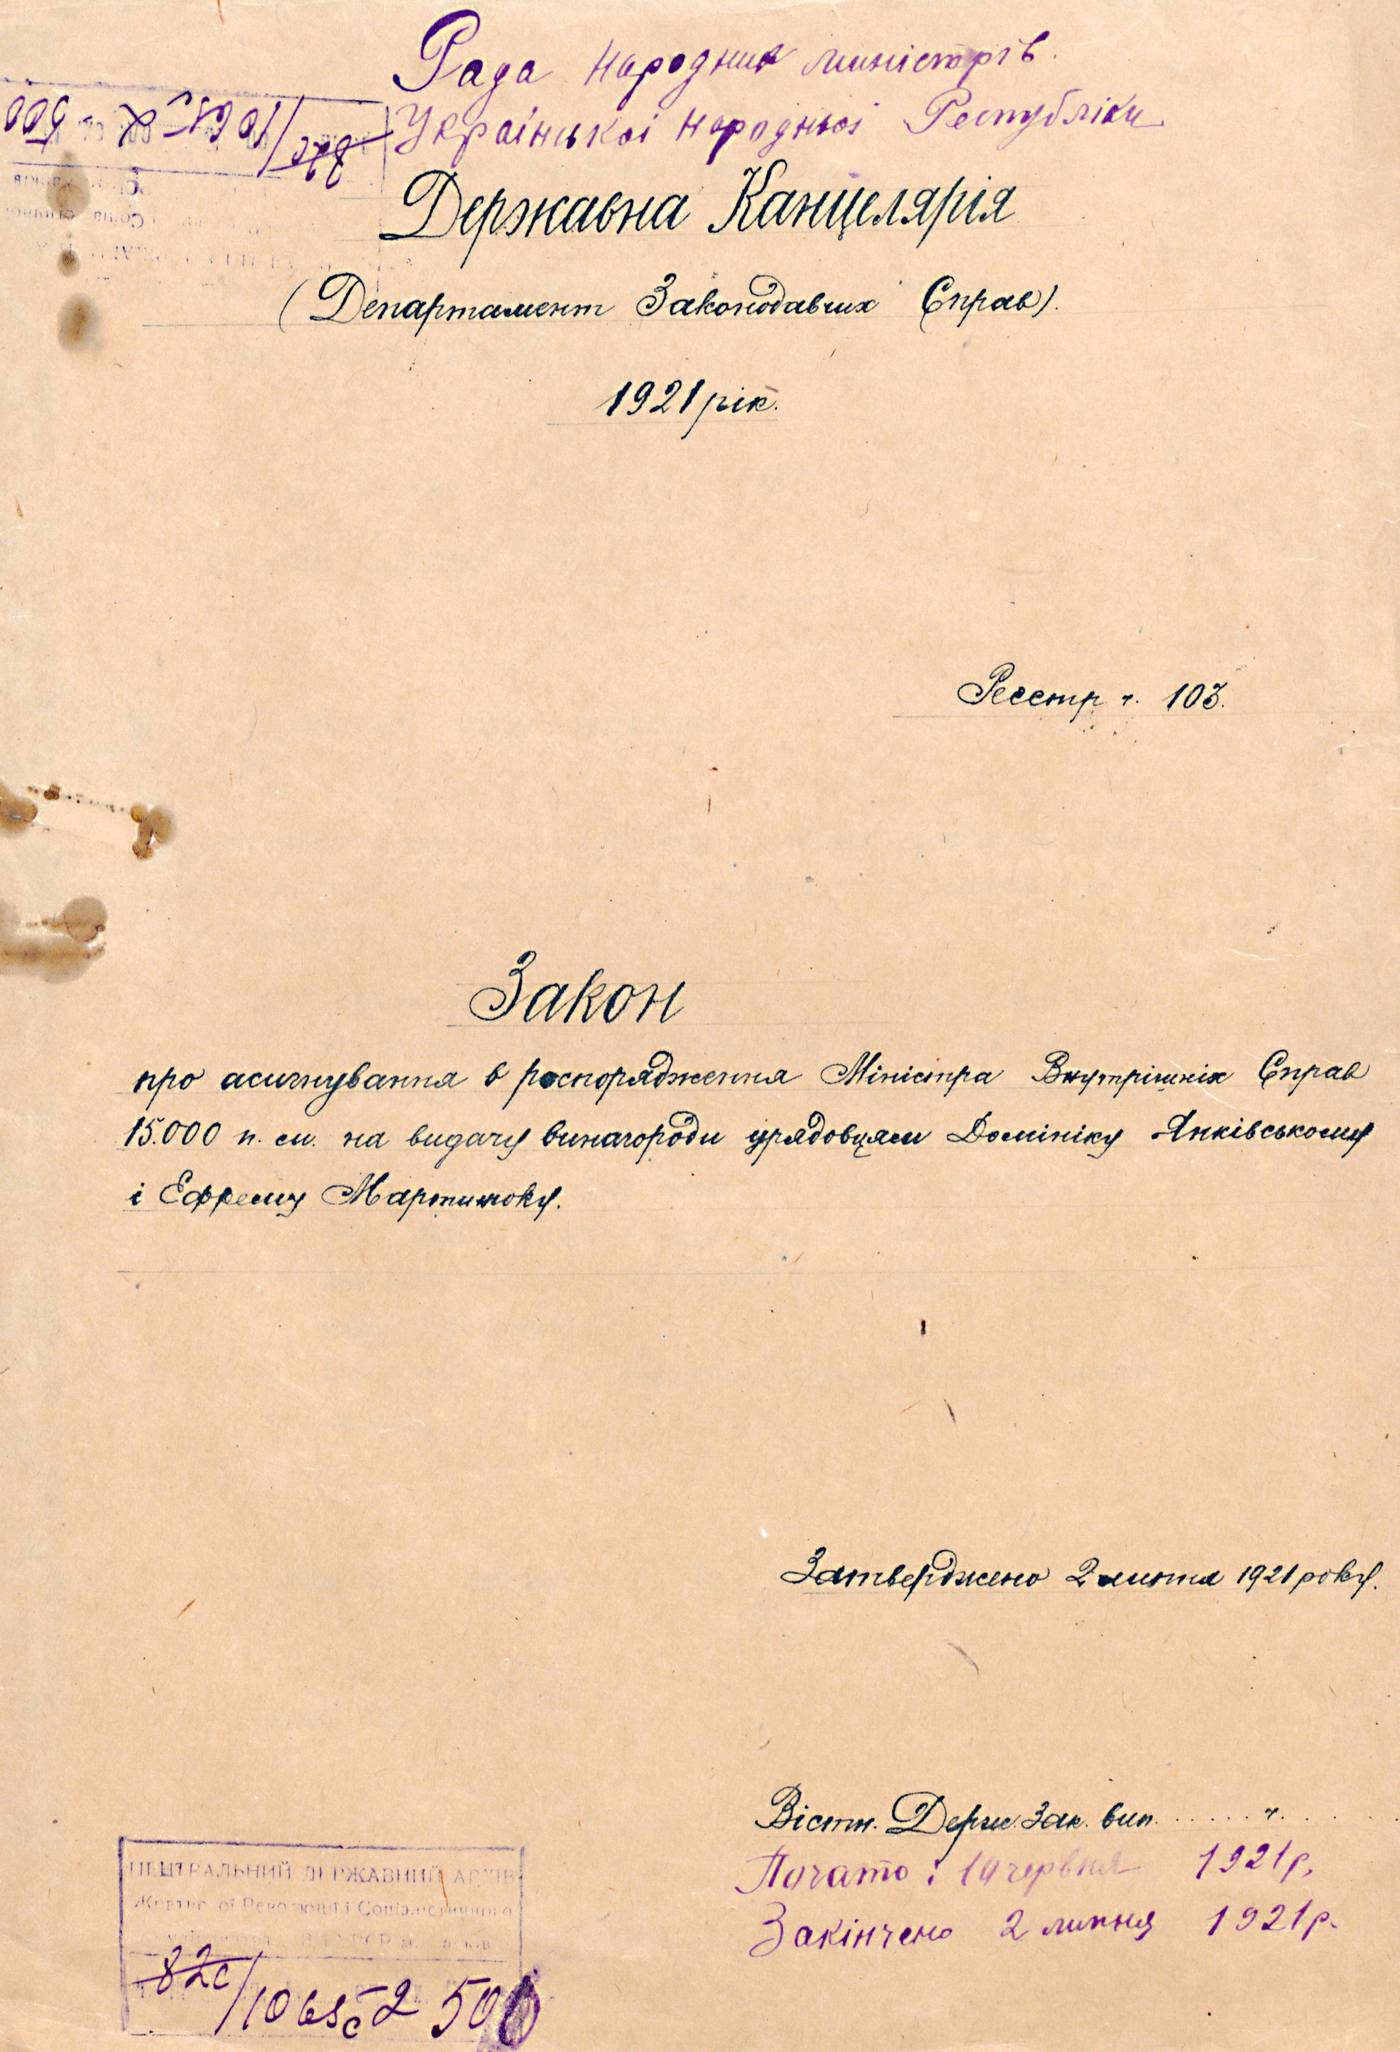 Рада народних міністрів
Української народньої Республіки
Державна Канцелярія
(Департамент Законодавчих Справ).
1921 рік.
Реєстр ч. 103.
Закон
про асигнування в роспорядження Міністра Внутрішніх Справ
15.000 п. м. на видачу винагороди урядовцям Домініку Янківському
і Ефрему Мартинюку.
Затверджено 2 липня 1921 року.
Вістн. Держ. Зак. вип. . . . . . ч. . . . .
Почато: 10 червня 1921 р.
Закінчено 2 липня 1921 р.
ЦЕНТРАЛЬНИЙ ДЕРЖАВНИЙ АРХІВ
Жовтневої Революції і Соціалістичного
82с/1065с 2 500